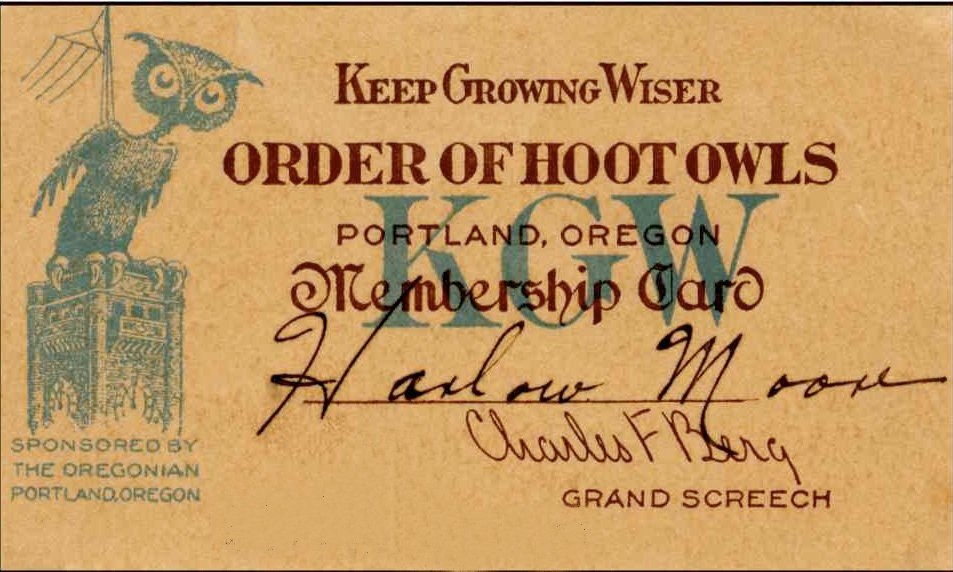 KEEP GROWING WISER
ORDER OF HOOT OWLS
KGW
PORTLAND, OREGON
Membership Card
Harlow Moore
Charles F Berg
GRAND SCREECH
SPONSORED BY
THE OREGONIAN
PORTLAND, OREGON